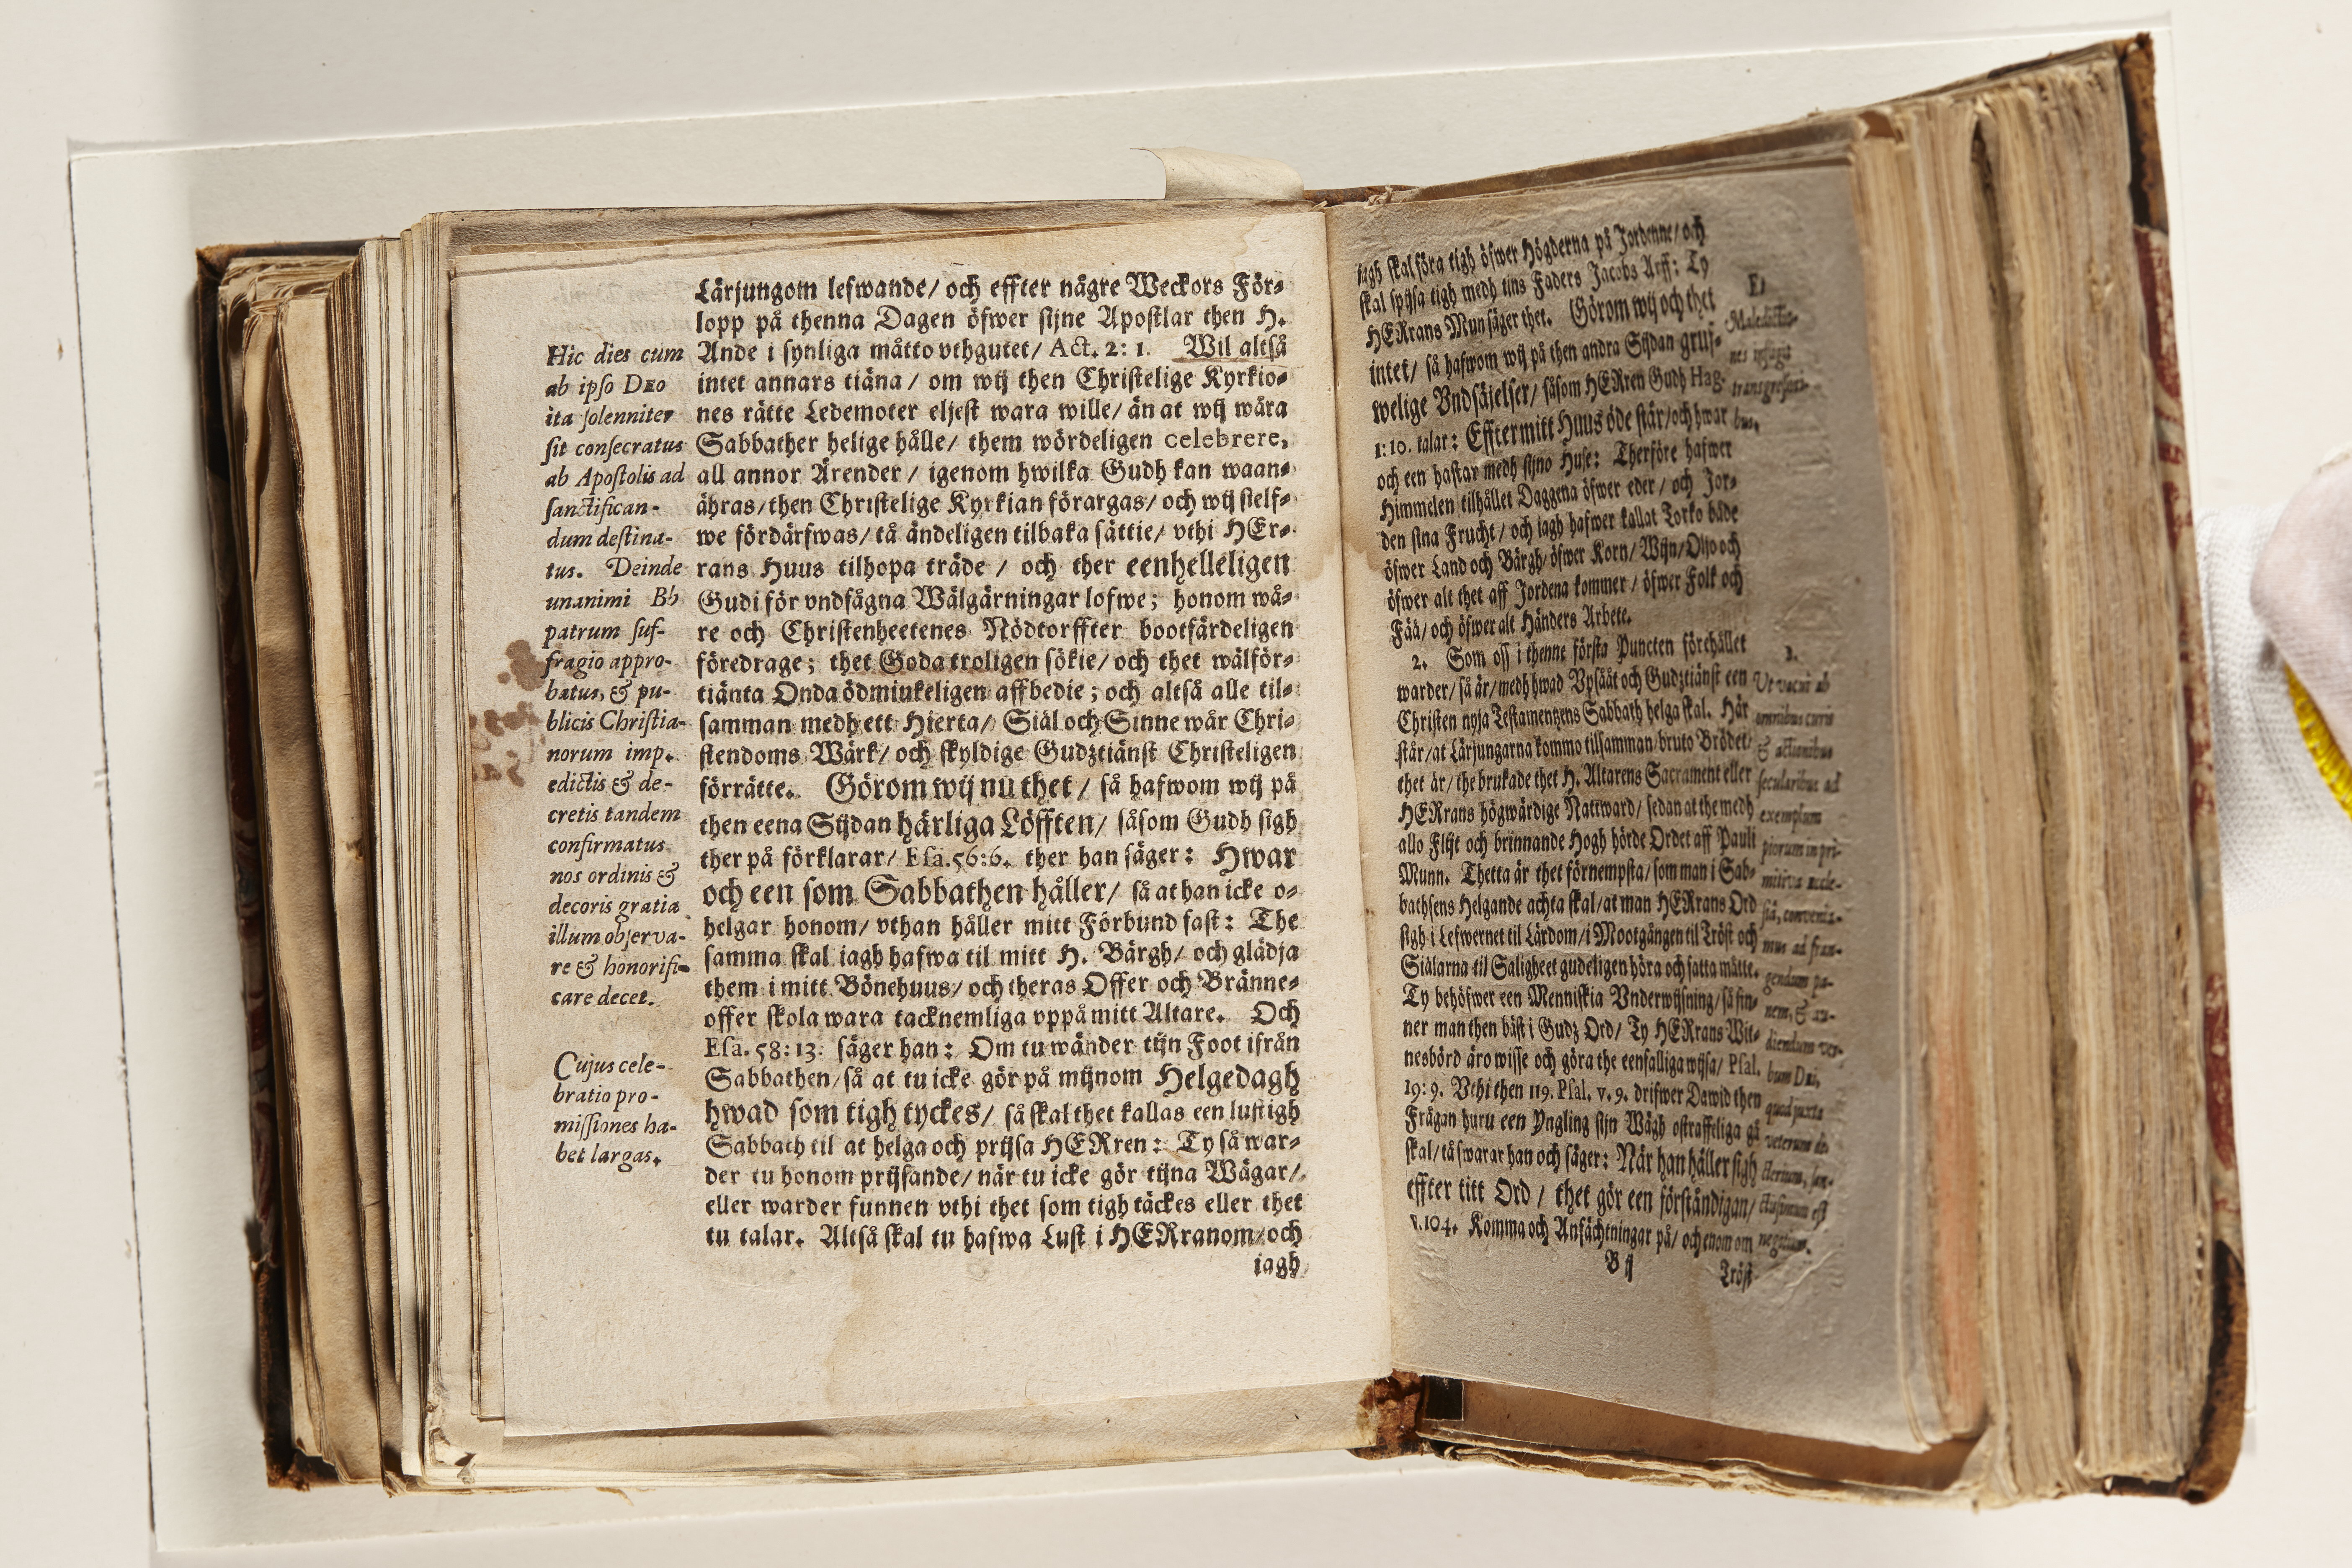 Lärjungom lefwande/ och effter någre Weckors För-
lopp på thenna Dagen öfwer sijne Apostlar then H.
Ande i synliga måtto vthgutet/ Act. 2: 1. Wil altså
intet annars tiäna/ om wij then Christelige Kyrkio-
nes rätte Ledemoter eljest wara wille/ än at wij wåra
Sabbather helige hålle/ them wördeligen celebrere,
all annor Ärender/ igenom hwilka Gudh kan waan-
ähras/ then Christelige Kyrkian förargas/ och wij sielf-
we fördärfwas/ tå ändeligen tilbaka sättie/ vthi HEr-
rans Huus tilhopa träde/ och ther eenhelleligen
Gudi för vndfågna Wälgärningar lofwe; honom wå-
re och Christenheetenes Nödtorffter bootfärdeligen
föredrage; thet Goda troligen sökie/ och thet wälför-
tiänta Onda ödmiukeligen affbedie; och altså alle til-
samman medh ett Hierta/ Siäl och Sinne wår Chri-
stendoms Wärk/ och skyldige Gudztiänst Christeligen
förrätte. Görom wij nu thet/ så hafwom wij på
then eena Sijdan härliga Löfften/ såsom Gudh sigh
ther på förklarar/ Esa. 56: 6. ther han säger: Hwar
och een som Sabbathen håller/ så at han icke o-
helgar honom/ vthan håller mitt Förbund fast: The
samma skal iagh hafwa til mitt H. Bärgh/ och glädja
them i mitt Bönehuus/ och theras Offer och Bränne-
offer skola wara tacknemliga vppå mitt Altare. Och
Esa. 58: 13. säger han: Om tu wänder tijn Foot ifrån
Sabbathen/ så at tu icke gör på mijnom Helgedagh
hwad som tigh tyckes/ så skal thet kallas een lustigh
Sabbath til at helga och prijsa HERren: Ty så war-
der tu honom prijsande/ när tu icke gör tijna Wägar/
eller warder funnen vthi thet som tigh täckes eller thet
tu talar. Altså skal tu hafwa Lust i HERranom/ och
iagh
Hic dies cum
ab ipso Deo
ita solenniter
sit consecratus
ab Apostolis ad
sanctifican-
dum destina-
tus. Deinde
unanimi Bb
patrum suf-
fragio appro-
batus, & pu-
blicis Christia-
norum imp.
edictis & de-
cretis tandem
confirmatus
nos ordinis &
decoris gratia
illum observa-
re & honorifi-
care decet.
Cujus cele-
bratio pro-
missiones ha-
bet largas.
iagh skal föra tigh öfwer Högderna på Jordenne/ och
skal spijsa tigh medh tins Faders Jacobs Arff: Ty
HERrans Mun säger thet. Görom wij och thet
intet/ så hafwom wij på then andra Sijdan gruf-
welige Vndsäjelser/ såsom HERren Gudh Hag.
1: 10. talar: Effter mitt Huus öde står/ och hwar
och een hastar medh sijno Huse: Therföre hafwer
Himmelen tilhållet Daggena öfwer eder/ och Jor-
den sina Frucht/ och iagh hafwer kallat Torko både
öfwer Land och Bärgh/ öfwer Korn/ Wijn/ Oljo och
öfwer alt thet aff Jordena kommer/ öfwer Folk och
Fää/ och öfwer alt Händers Arbete.
2. Som oss i thenne första Puncten förehållet
warder/ så är/ medh hwad Vpsååt och Gudztiänst een
Christen nyja Testamentzens Sabbath helga skal. Här
står/ at Lärjungarna kommo tilsamman/ bruto Brödet/
thet är/ the brukade thet H. Altarens Sacrament eller
HERrans högwärdige Nattward/ sedan at the medh
allo Flijt och brinnande Hogh hörde Ordet aff Pauli
Munn. Thetta är thet förnempsta/ som man i Sab-
bathsens Helgande achta skal/ at man HERrans Ord
sigh i Lefwernet til Lärdom/ i Mootgången til Tröst och
Siälarna til Saligheet gudeligen höra och fatta måtte.
Ty behöfwer een Menniskia Vnderwijsning/ så fin-
ner man then bäst i Gudz Ord/ Ty HERrans Wit-
nesbörd äro wisse och göra the eenfalliga wijsa/ Psal.
19: 9. Vthi then 119. Psal. v. 9. drifwer Dawid then
Frågan huru een Yngling sijn Wägh ostraffeliga gå
skal/ tå swarar han och säger: När han håller sigh
effter titt Ord/ thet gör een förståndigan/
v. 104. Komma och Anfächtningar på/ och enom om
B ij
Tröst
Et
Maledictio-
nes
transgressori-
bus.
2.
Ut vacui ab
omnibus curis
& actionibus
secularibus ad
exemplum
piorum in pri-
mitiva eccle-
siâ, convenia-
mus ad fran-
gendum pa-
nem, & au-
diendum ver-
bum Dei,
quod juxta
veterum do-
ctorum, san-
ctissimum est
negotium.